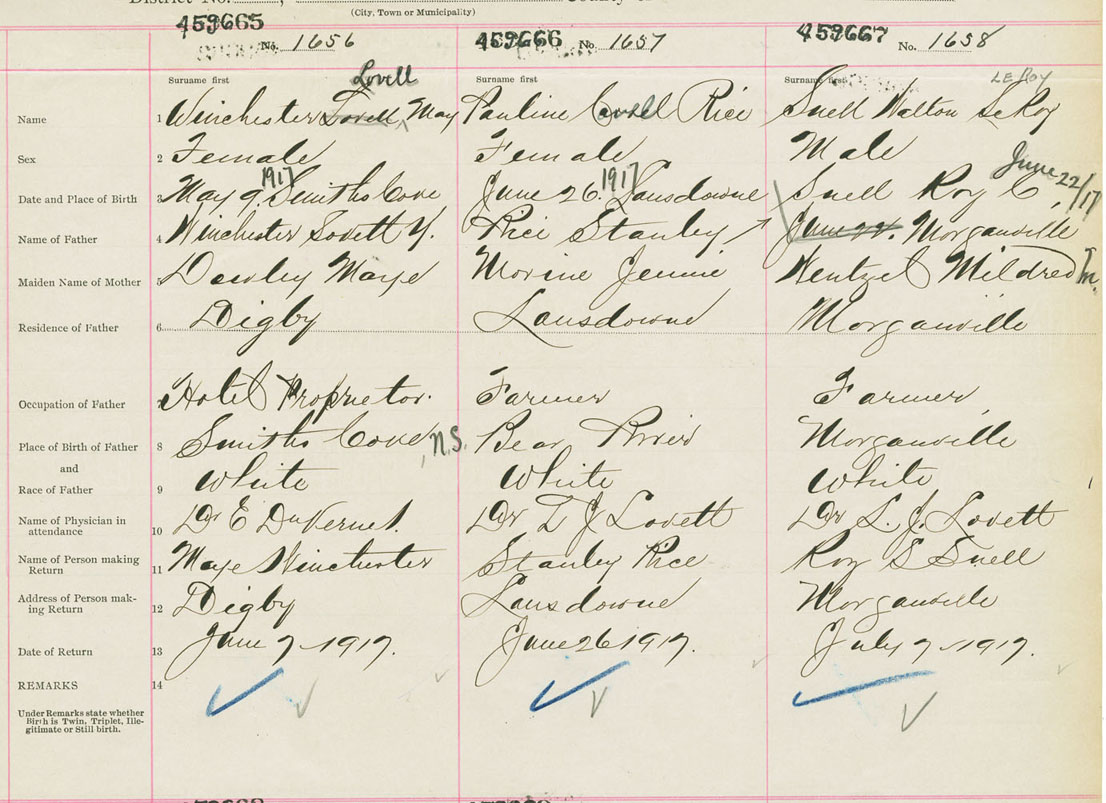 District No. , County
(City, Town or Municipality)
459665 459666 459667
No. 1656 No. 1657 No. 1658
Surname first Lovell Surname first Surname first LE ROY
Name 1 Winchester Lovell May Pauline Covell Rice Snell Walton LeRoy
Sex 2 Female Female Male
Date and Place of Birth 3 May 9. 1917 Smiths Cove June 26. 1917 Lansdowne Snell Roy C, June 22/17
Name of Father 4 Winchester Lovett Y. Rice Stanley June 22. Morganville
Maiden Name of Mother 5 Dewley Maye Morine Jennie Wentzel Mildred M.
Residence of Father 6 Digby Lansdowne Morganville
Occupation of Father Hotel Proprietor. Farmer Farmer
Place of Birth of Father 8 Smiths Cove, N.S. Bear River Morganville
and
Race of Father 9 White White White
Name of Physician in
attendance 10 Dr E DuVernet. Dr L J Lovett Dr L. J. Lovett
Name of Person making
Return 11 Maye Winchester Stanley Rice Roy S Snell
Address of Person mak-
ing Return 12 Digby Lansdowne Morganville
Date of Return 13 June 7 - 1917. June 26 1917. July 7 - 1917.
REMARKS 14
Under Remarks state whether
Birth is Twin, Triplet, Ille-
gitimate or Still birth.